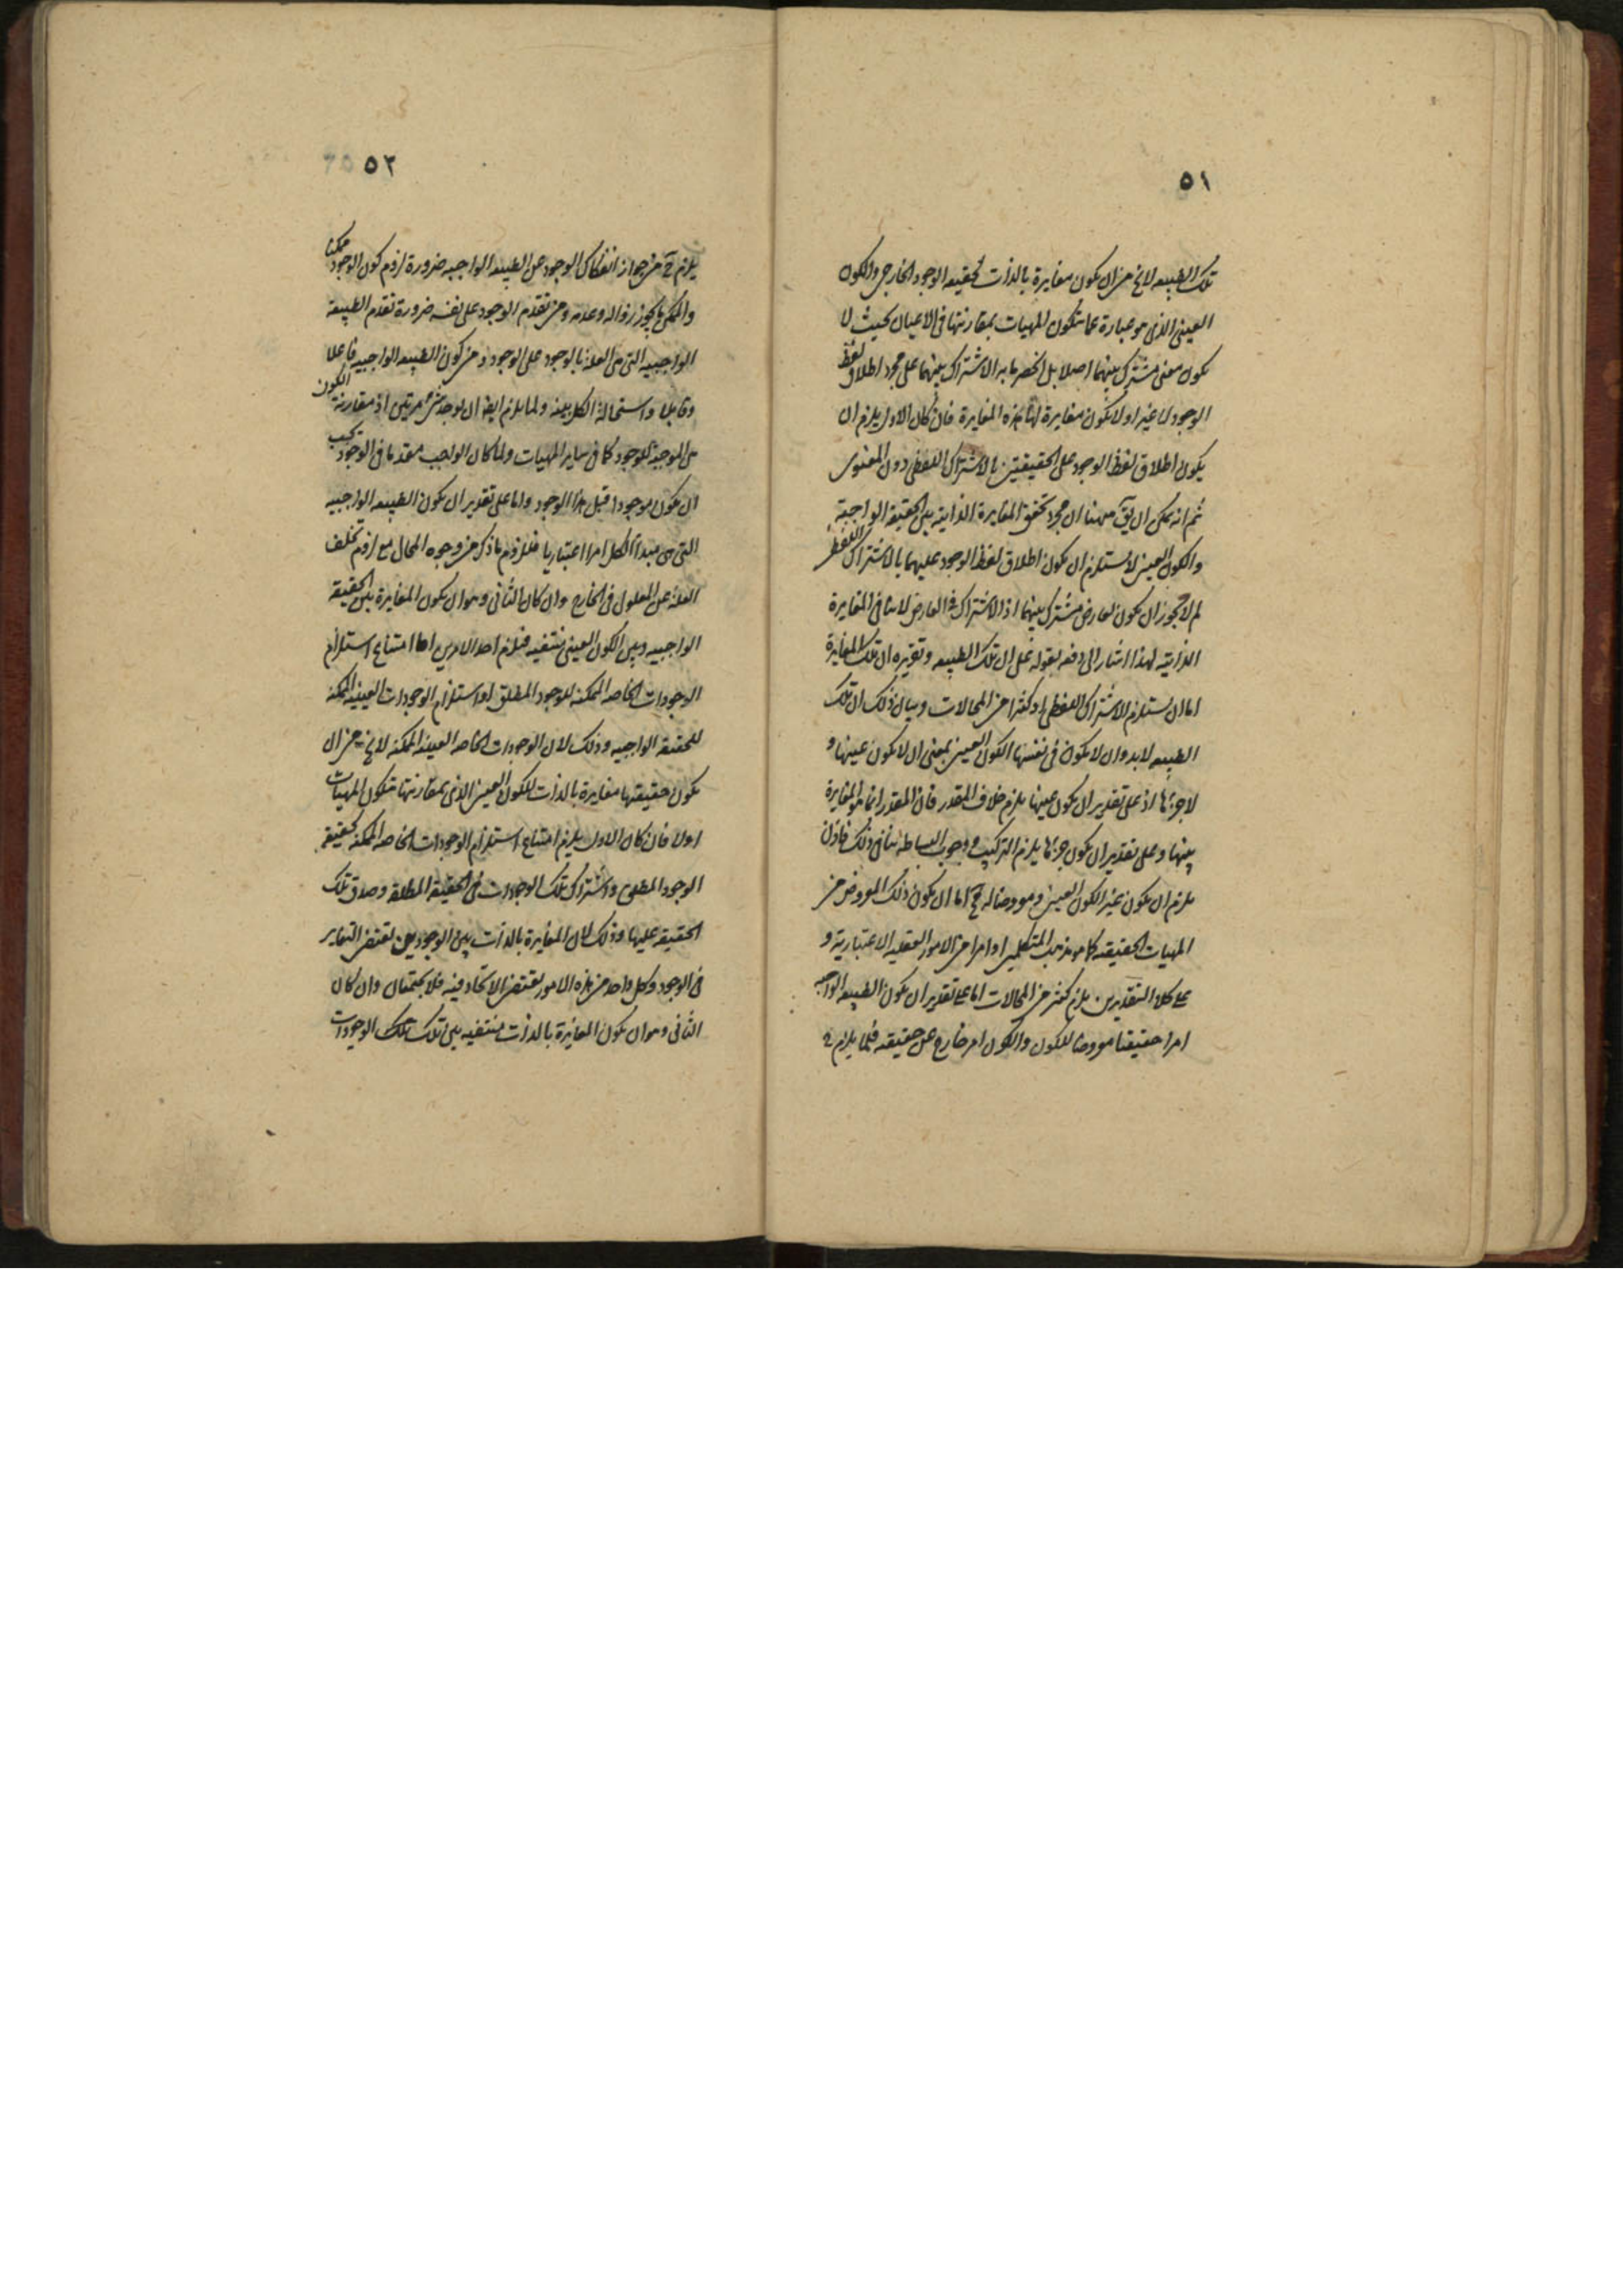 ٥١
تلك الطبيعه لايخ من ان يكون مغايرة بالذات لحقيقه الوجود الخارجى والكون
العينى الذى هو عبارة عما يتكون المهيات بمقارنتها فى الاعيان بحيث لا
يكون معنى مشترك بينهما اصلا بل انحصر ما به الاشتراك بينهما على مجرد اطلاق لفظ
الوجود لا غير او لا يكون مغايرة لها هذه المغايرة فان كان الاول يلزم ان
يكون اطلاق لفظ الوجود على الحقيقتين بالاشتراك اللفظى دون المعنوى
ثم انه يمكن ان يق ههنا ان مجرد تحقق المغايرة الذاتيه بين الحقيقة الواجبية
والكون العينى لا يستلزم ان يكون اطلاق لفظ الوجود عليهما بالاشتراك اللفظى
لم لا يجوز ان يكون لعارض مشترك بينهما اذ الاشتراك فى العارض لا ينافى المغايرة
الذاتيه لهذا اشار الى دفعه بقوله على ان تلك الطبيعه وتقريره ان تلك المغايرة
اما ان يستلزم الاشتراك اللفظى او كثيرا من المحالات وبيان ذلك ان تلك
الطبيعه لابد وان لا يكون فى نفسها الكون العينى بمعنى ان لا يكون عينها و
لا جزءها اذ على تقدير ان يكون عينها يلزم خلاف المقدر فان المقدر انما هو المغايرة
بينها وعلى تقدير ان يكون جزءها يلزم التركيب ووجوب البساطه ينافى ذلك فاذن
يلزم ان يكون غير الكون العينى ومعروضا له فح اما ان يكون ذلك المعروض من
المهيات الحقيقيه كما هو مذهب المتكلمين او امرا من الامور العقليه الاعتبارية و
على كلا التقديرين يلزم كثير من المحالات اما على تقدير ان يكون الطبيعه الواجبه
امرا حقيقيا معروضا للكون والكون امر خارج عن حقيقته فلما يلزم ح
٥٢
يلزم ح من جواز انفكاك الوجود عن الطبيعه الواجبه ضرورة لزوم كون الوجود ممكنا
والممكن ما يجوز زواله وعدمه ومن تقدم الوجود على نفسه ضرورة تقدم الطبيعة
الواجبيه التى هى العلة بالوجود على الوجود ومن كون الطبيعه الواجبيه فاعلا
وقابلا واستحالة الكل بينه ولما يلزم ايضا ان يوجد شىء مرتين اذ مقارنة الكون
هى الموجبة للوجود كما فى ساير المهيات ولما كان الواجب مقدما فى الوجود يجب
ان يكون موجودا قبل هذا الوجود واما على تقدير ان يكون الطبيعه الواجبيه
التى هى مبدأ الكل امرا اعتباريا فللزوم ما ذكر من وجوه المحال مع لزوم تخلف
العلة عن المعلول فى الخارج وان كان الثانى وهو ان يكون المغايرة بين الحقيقة
الواجبيه وبين الكون العينى منتفيه فيلزم احد الامرين اما امتناع استلزام
الوجودات الخاصه الممكنه للوجود المطلق او استلزام الوجودات العينيه الممكنه
للحقيقة الواجبيه وذلك لان الوجودات الخاصه العينيه الممكنه لايخ من ان
يكون حقيقتها مغايرة بالذات للكون العينى الذى بمقارنتها يتكون المهيات
او لا فان كان الاول يلزم امتناع استلزام الوجودات الخاصه الممكنه لحقيقة
الوجود المطلق واشتراك تلك الوجودات فى الحقيقة المطلقه وصدق تلك
الحقيقه عليها وذلك لان المغايرة بالذات بين الوجودين تقتضى التغاير
فى الوجود وكل واحد من هذه الامور تقتضى الاتحاد فيه فلا يجتمعان وان كان
الثانى وهو ان يكون المغايرة بالذات منتفيه بين تلك تلك الوجودات